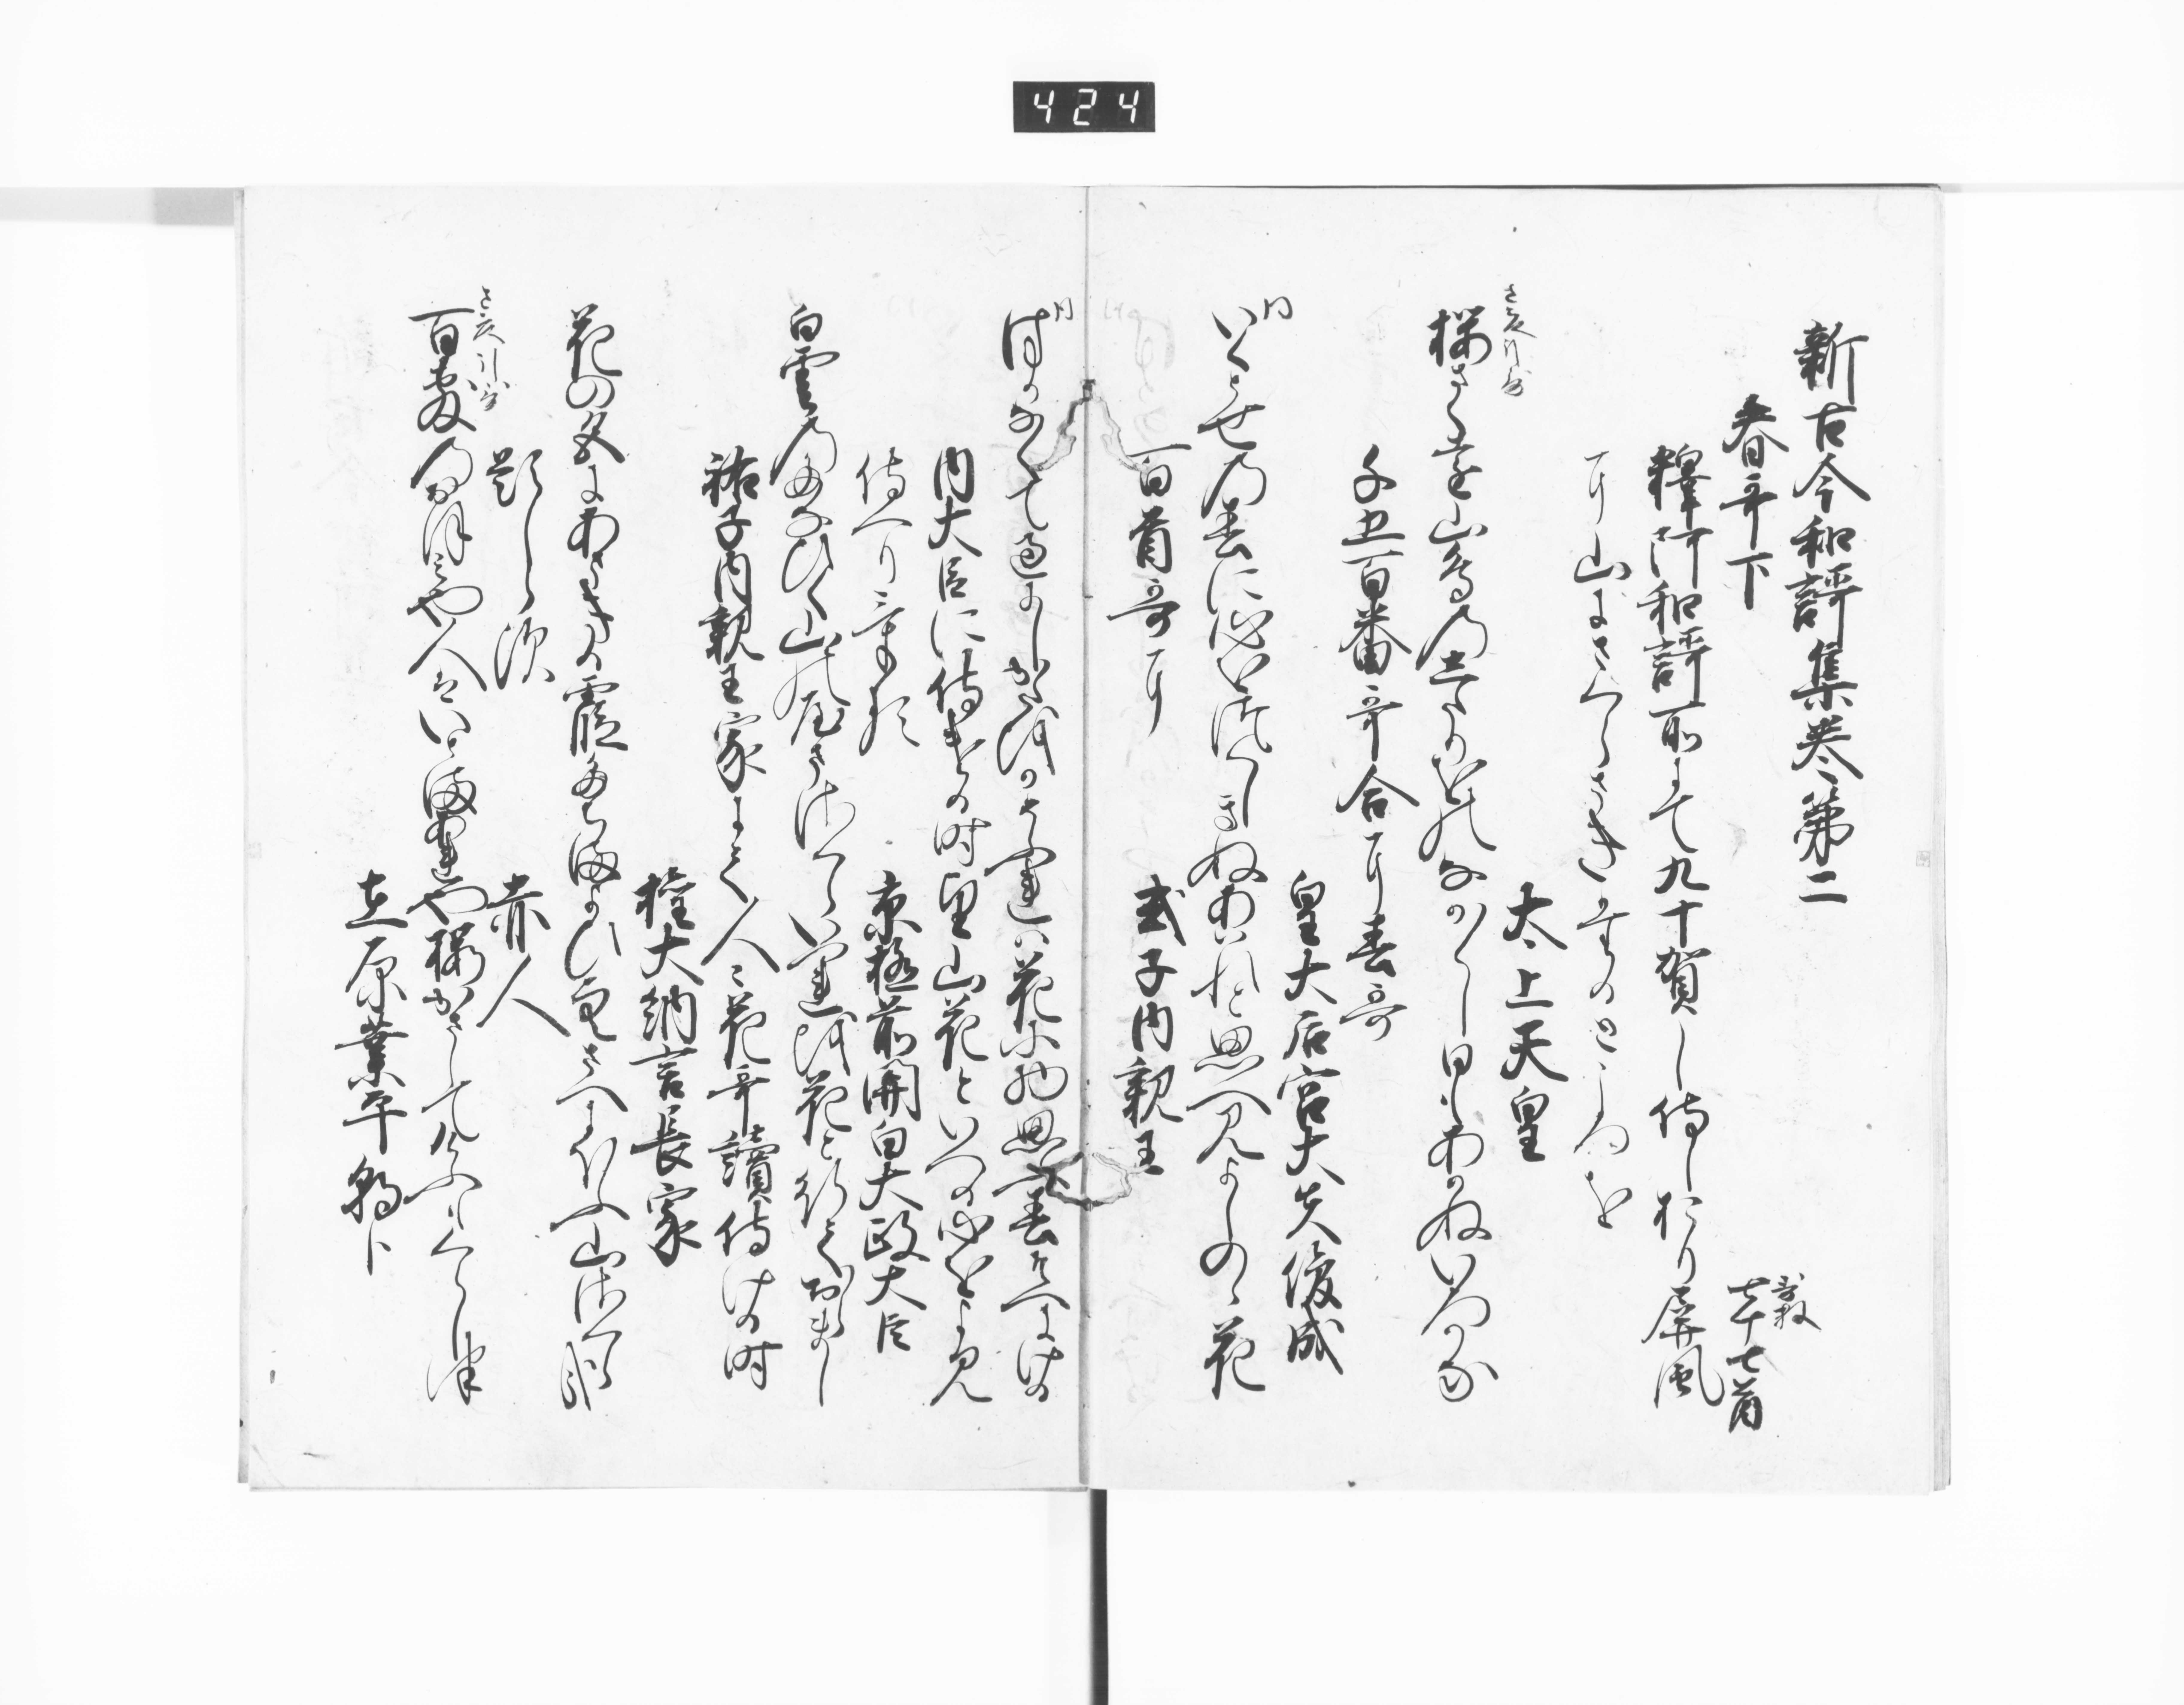 424
新古今和謌集巻第二
春哥下
歌数
七十七首
釋阿和謌所にて九十賀し侍しおり屏風
に山にさくらさきたるところを
太上天皇
さくら
桜さく遠山鳥のしたりをのなか〳〵し日もあかぬいろかな
千五百番哥合に春哥
皇大后宮大夫俊成
同
いくとせの春に心をつくしきぬあはれと思へみよしのゝ花
百首哥に
式子内親王
同
はかなくて過にしかたをかそふれは花に物思ふ春そへにける
内大臣に侍ける時望山花といへる心をよみ
侍ける
京極前関白太政大臣
白雲のたなひく山の八重さくらいつれを花と行ておらまし
祐子内親王家にて人〻花哥讀侍ける時
権大納言長家
花の色にあまきる霞たちまよひ空さへ匂ふ山さくら哉
題しらす
赤人
百敷の大宮人はいとまあれや桜かさしてけふもくらしつ
在原業平朝臣